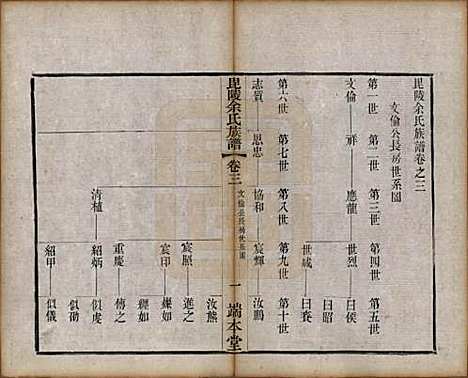 毘陵余氏族譜卷之三
文倫公長房世系圖
第一世 第二世 第三世 第四世 第五世
文倫 祥 應龍 世烈 曰侯
曰昭
世咸 曰賽
毘陵余氏族譜 卷三 文倫公長房世系圖 一 端本堂
第六世 第七世 第八世 第九世 第十世
志質 思忠 協和 宸輝 汝鵬
汝熊
宸照 進之
宸印 繼如
繩如
重慶 傳之
清植 紹炳 似虔
似勛
紹甲 似儀